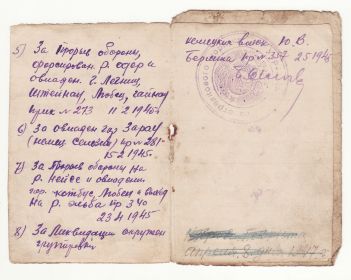 5) За Прорыв обороны,
форсирован. р. Одер и
овладен. г. Легниц
Штейнау, Любен, Гайнау
прик N 273 11 2 1945
6) За овладен гор Зарау
(немец Силезия) пр N 281
15 2 1945.
7) За Прорыв обороны на
р. Нейсе и овладении
гор. Котбус, Любен и выход
на р. Эльба пр 340
23 4 1945
8) За Ликвидацию окружен
группировки
немецких войск Ю. В.
Берлина пр N 357 2 5 1945